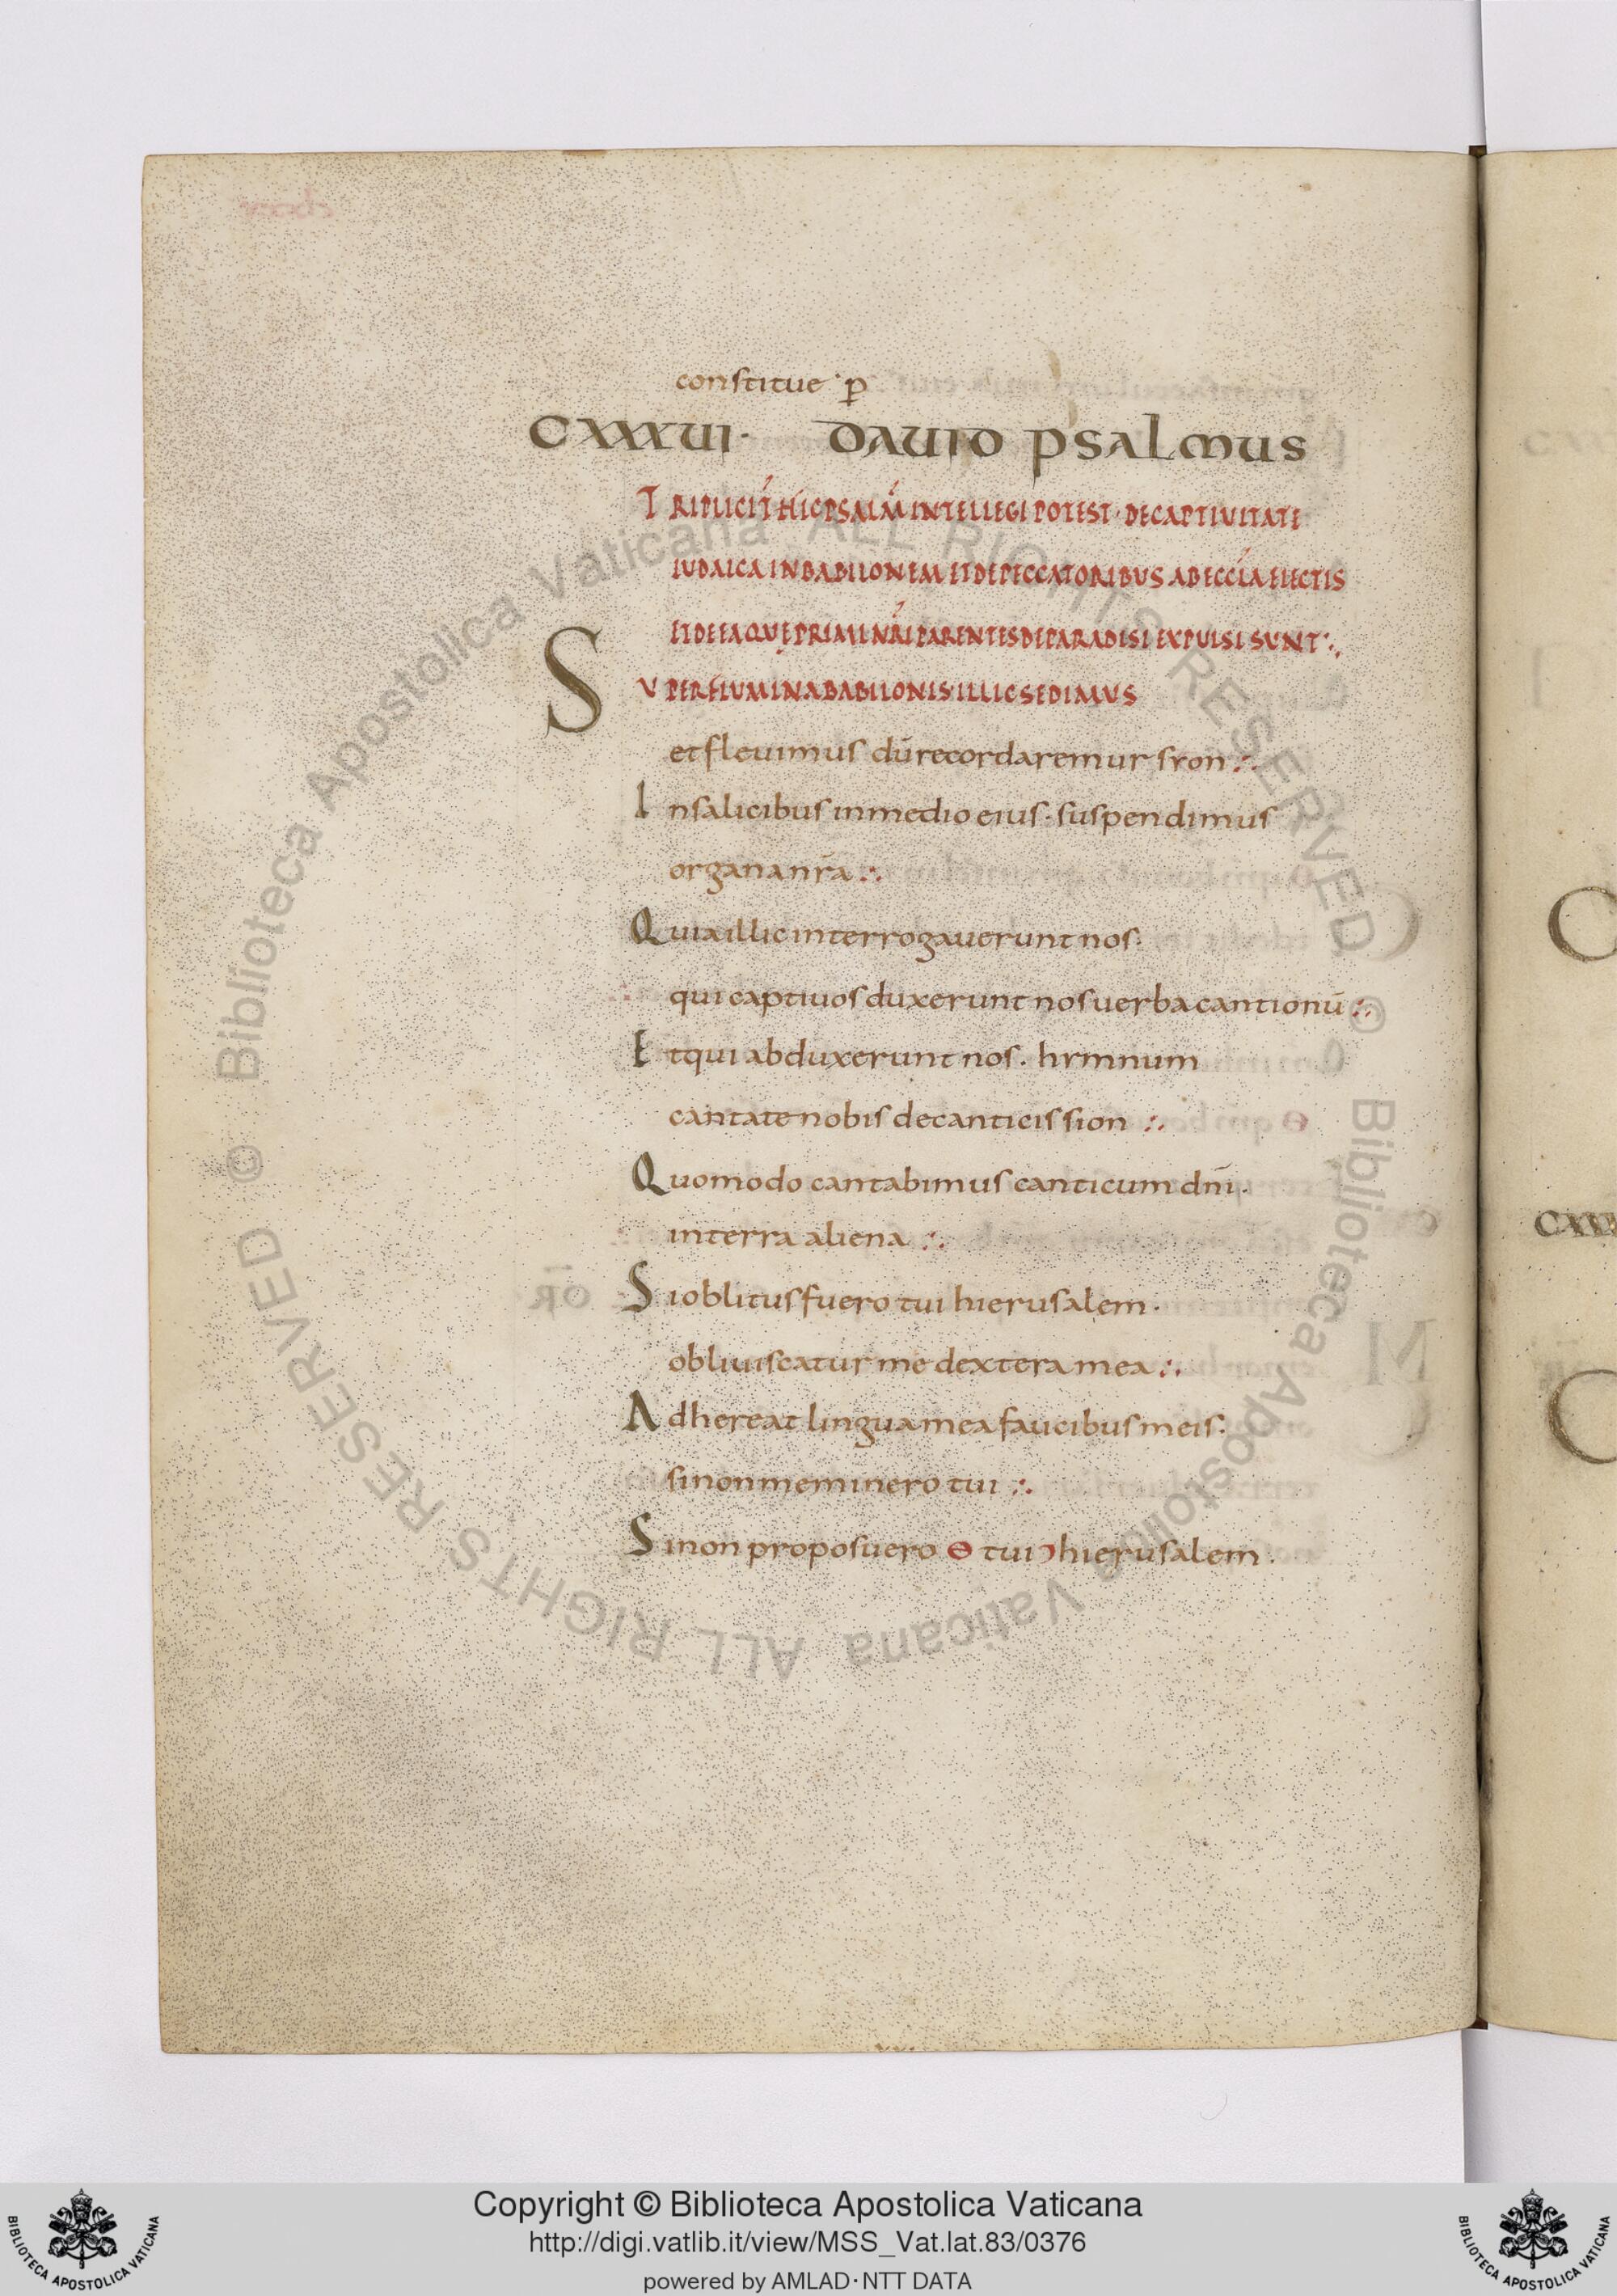 constitue · ꝑ
CXXXUI · DAUID PSALMUS
TRIPLICIT̄ HIC PSALM̄ INTELLEGI POTEST · DE CAPTIVITATE
IUDAICA IN BABILONEM ET DE PECCATORIBUS AB ECCĹA EIECTIS
ET DE EA QUĘ PRIMI NRĪ PARENTES DE PARADISI EXPULSI SUNT ∴
SUPER FLUMINA BABILONIS ILLIC SEDIMUS
et flevimus dū recordaremur syon ∴
In salicibus in medio eius · suspendimus
organa nr̄a ∴
Quia illic interrogaverunt nos ·
qui captivos duxerunt nos verba cantionū ∴
Et qui abduxerunt nos · hymnum
cantate nobis de canticis sion ∴
Quomodo cantabimus canticum dn̄i ·
in terra aliena ∴
Si oblitus fuero tui hierusalem ·
obliviscatur me dextera mea ∴
Adhereat lingua mea faucibus meis ·
si non meminero tui ∴
Si non proposuero Ɵ tui Ɔ hierusalem ·
© Biblioteca Apostolica Vaticana ALL RIGHTS RESERVED © Biblioteca Apostolica Vaticana ALL RIGHTS RESERVED
BIBLIOTECA APOSTOLICA VATICANA
Copyright © Biblioteca Apostolica Vaticana
http://digi.vatlib.it/view/MSS_Vat.lat.83/0376
powered by AMLAD · NTT DATA
BIBLIOTECA APOSTOLICA VATICANA